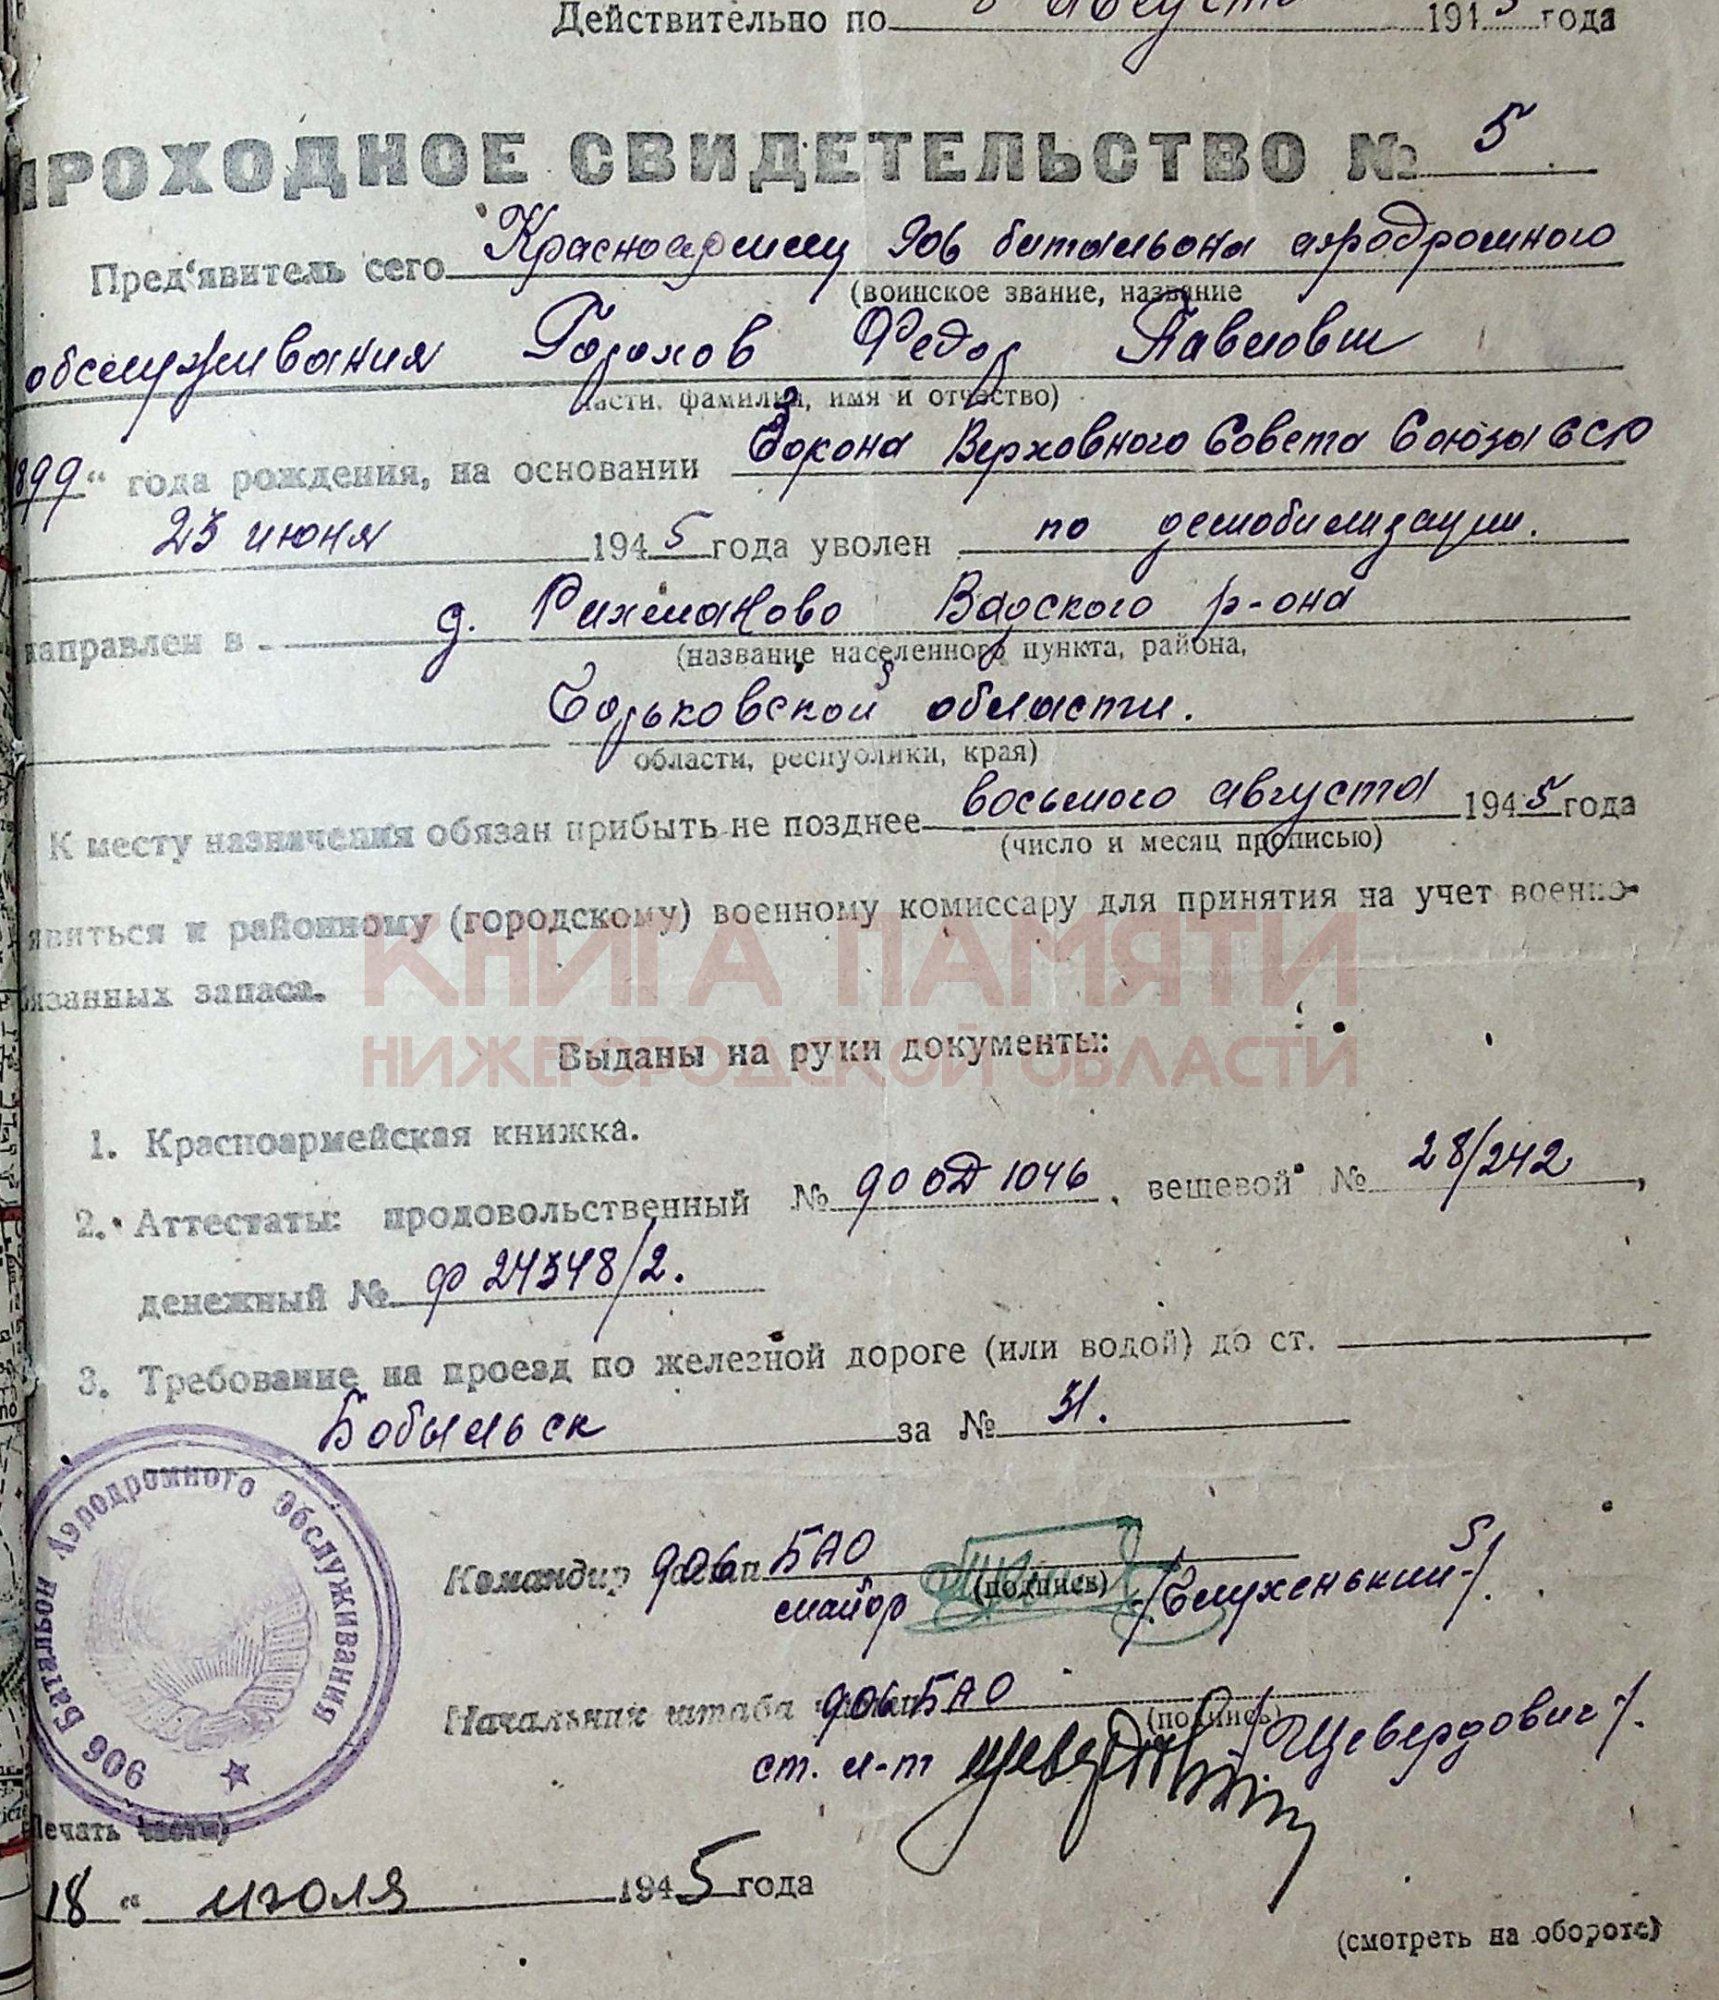 Действительно по 8 августа 1945 года
ПРОХОДНОЕ СВИДЕТЕЛЬСТВО № 5
Пред‘явитель сего Красноармеец 906 батальона аэродромного
(воинское звание, название
обслуживания Горохов Федор Павлович
части, фамилия, имя и отчество)
1899“ года рождения, на основании Закона Верховного Совета Союза ССР
23 июня 1945 года уволен по демобилизации.
направлен в д. Рахманово Вадского р-она
(название населенного пункта, района,
Горьковской области.
области, республики, края)
К месту назначения обязан прибыть не позднее восьмого августа 1945 года
(число и месяц прописью)
явиться к районному (городскому) военному комиссару для принятия на учет военно-
язанных запаса.
КНИГА ПАМЯТИ
НИЖЕГОРОДСКОЙ ОБЛАСТИ
Выданы на руки документы:
1. Красноармейская книжка.
2. Аттестаты: продовольственный № 90 ОД 1046, вещевой № 28/242,
денежный № Ф 24348/2.
3. Требование на проезд по железной дороге (или водой) до ст.
Бобыльск за № 31.
906 Батальон Аэродромного Обслуживания
Командир 906 БАО
майор (подпись) /Глухенький/.
Начальник штаба 906 БАО
(подпись)
ст. л-т /Щевердович/.
Печать части)
18 “ июля 1945 года
(смотреть на обороте)